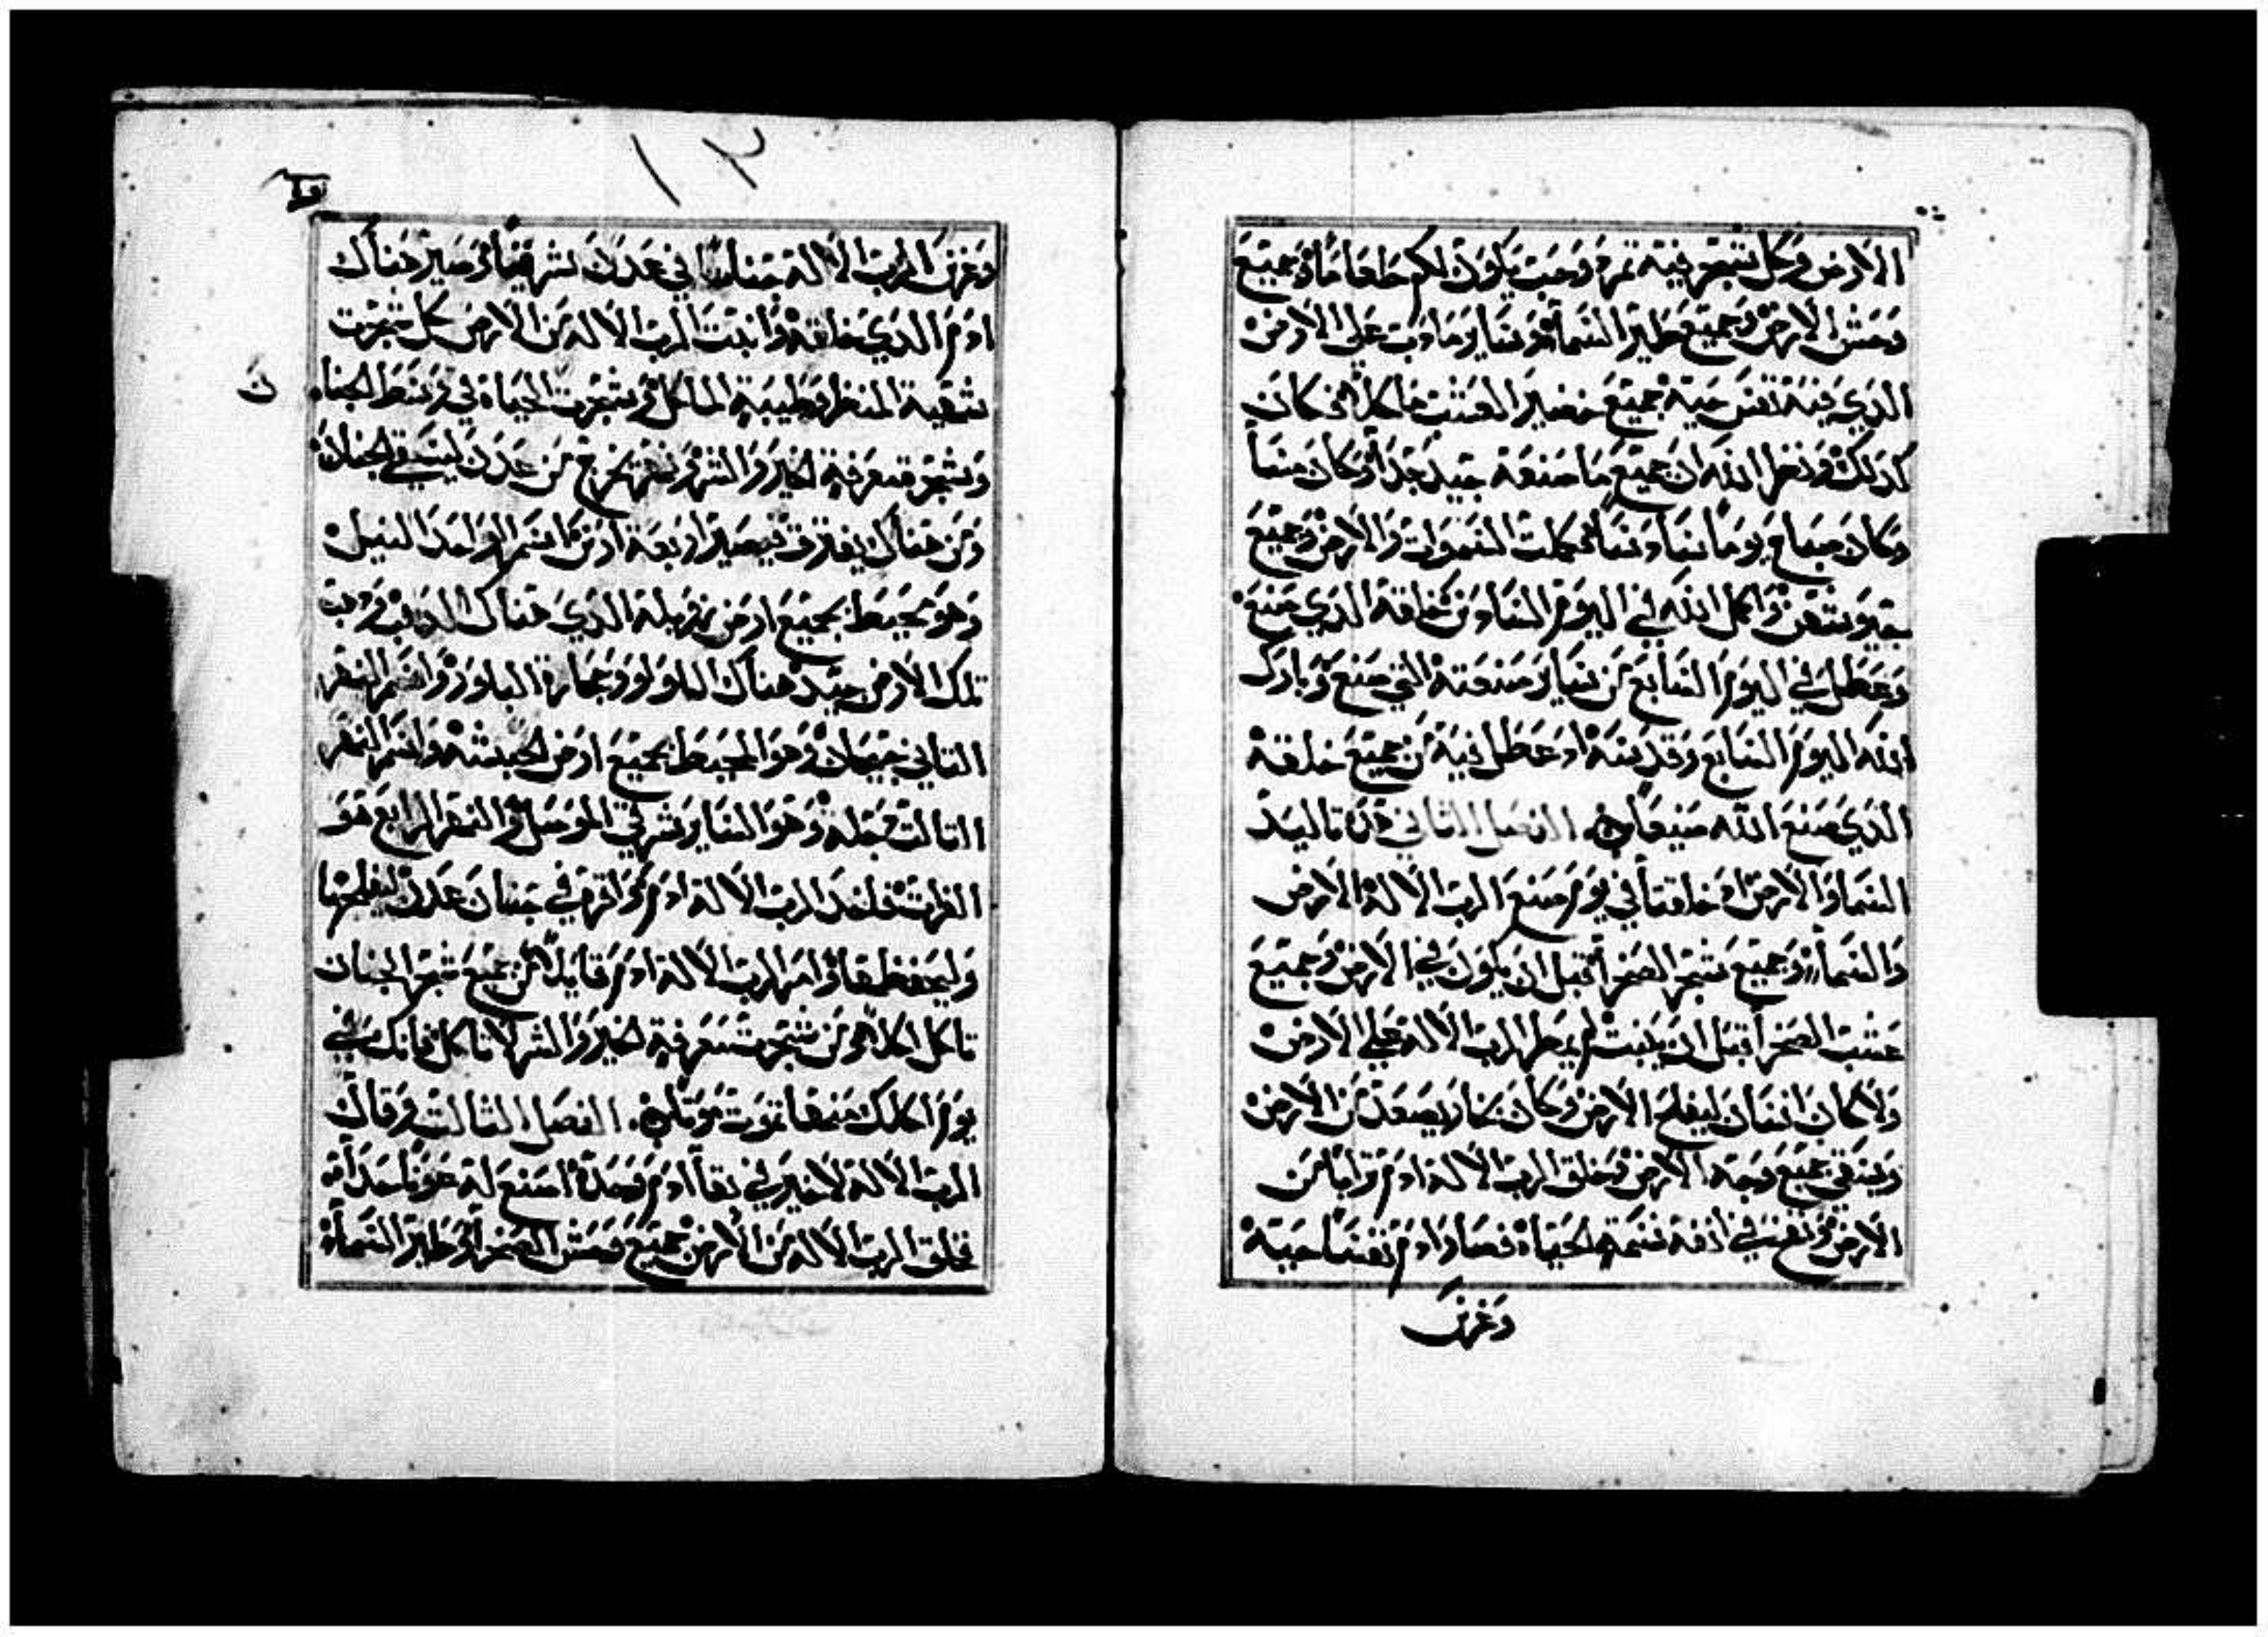 الارض وكل شجر فيه ثمره وحب يكون لكم طعاماً وجميع
وحش الارض وجميع طير السما وسايرما دب على الارض
الذي فيه نفس حية جميع خضير العشب ماكلاً فكان
كذلك ونظر الله ان جميع ما صنعه جيد جداً وكان مساً
وكان صباح يوماً سادساً فكملت السموات والارض وجميع
جيوشهن واكمل الله في اليوم السادس خلقه الذي صنع
وعطل في اليوم السابع من ساير صنعته التي صنع وبارك
الله اليوم السابع وقدسه اذ عطل فيه من جميع خلقه
الذي صنع الله صنيعاً الفصل الثاني هذه تواليد
السما والارض اذ خلقتا في يوم صنع الرب الاله الارض
والسما وجميع شجر الصحرا قبل ان يكون في الارض وجميع
عشب الصحرا قبل ان ينبت لم يمطر الرب الاله على الارض
ولا كان انسان ليفلح الارض وكان بخار يصعد من الارض
ويسقي جميع وجه الارض فخلق الرب الاله ادم تراباً من
الارض ونفخ في انفه نسمة الحياه فصار ادم نفساً حية
وغرس
١٢
وغرس الرب الاله جناناً في عدن شرقياً وصير هناك
ادم الذي خلقه وانبت الرب الاله من الارض كل شجرت
شهية المنظر وطيبة الماكل وشجرت الحياة في وسط الجنا
ن
وشجرة معرفة الخير والشر ونهر يخرج من عدن ليسقي الجنان
ومن هناك يفترق فيصير اربعة ارؤس اسم الواحد النيل
وهو محيط بجميع ارض زويلة الذي هناك الذهب وذهب
تلك الارض جيد هناك اللولو وحجارة البلور واسم النهر
الثاني جيحان وهو المحيط بجميع ارض الحبشه واسم النهر
الثالث دجله وهو الساير شرقي الموصل والنهر الرابع هو
الفرات فاخذ الرب الاله ادم واقره في جنان عدن ليفلحها
وليحفظها وامر الرب الاله ادم قايلاً من جميع شجر الجنان
تاكل اكلاً ومن شجرت معرفة الخير والشر لا تاكل فانك في
يوم اكلك منها تموت موتاً الفصل الثالث وقال
الرب الاله لا خير في بقا ادم وحده اصنع له عوناً حداه
فخلق الرب الاله من الارض جميع وحش الصحرا وطير السما